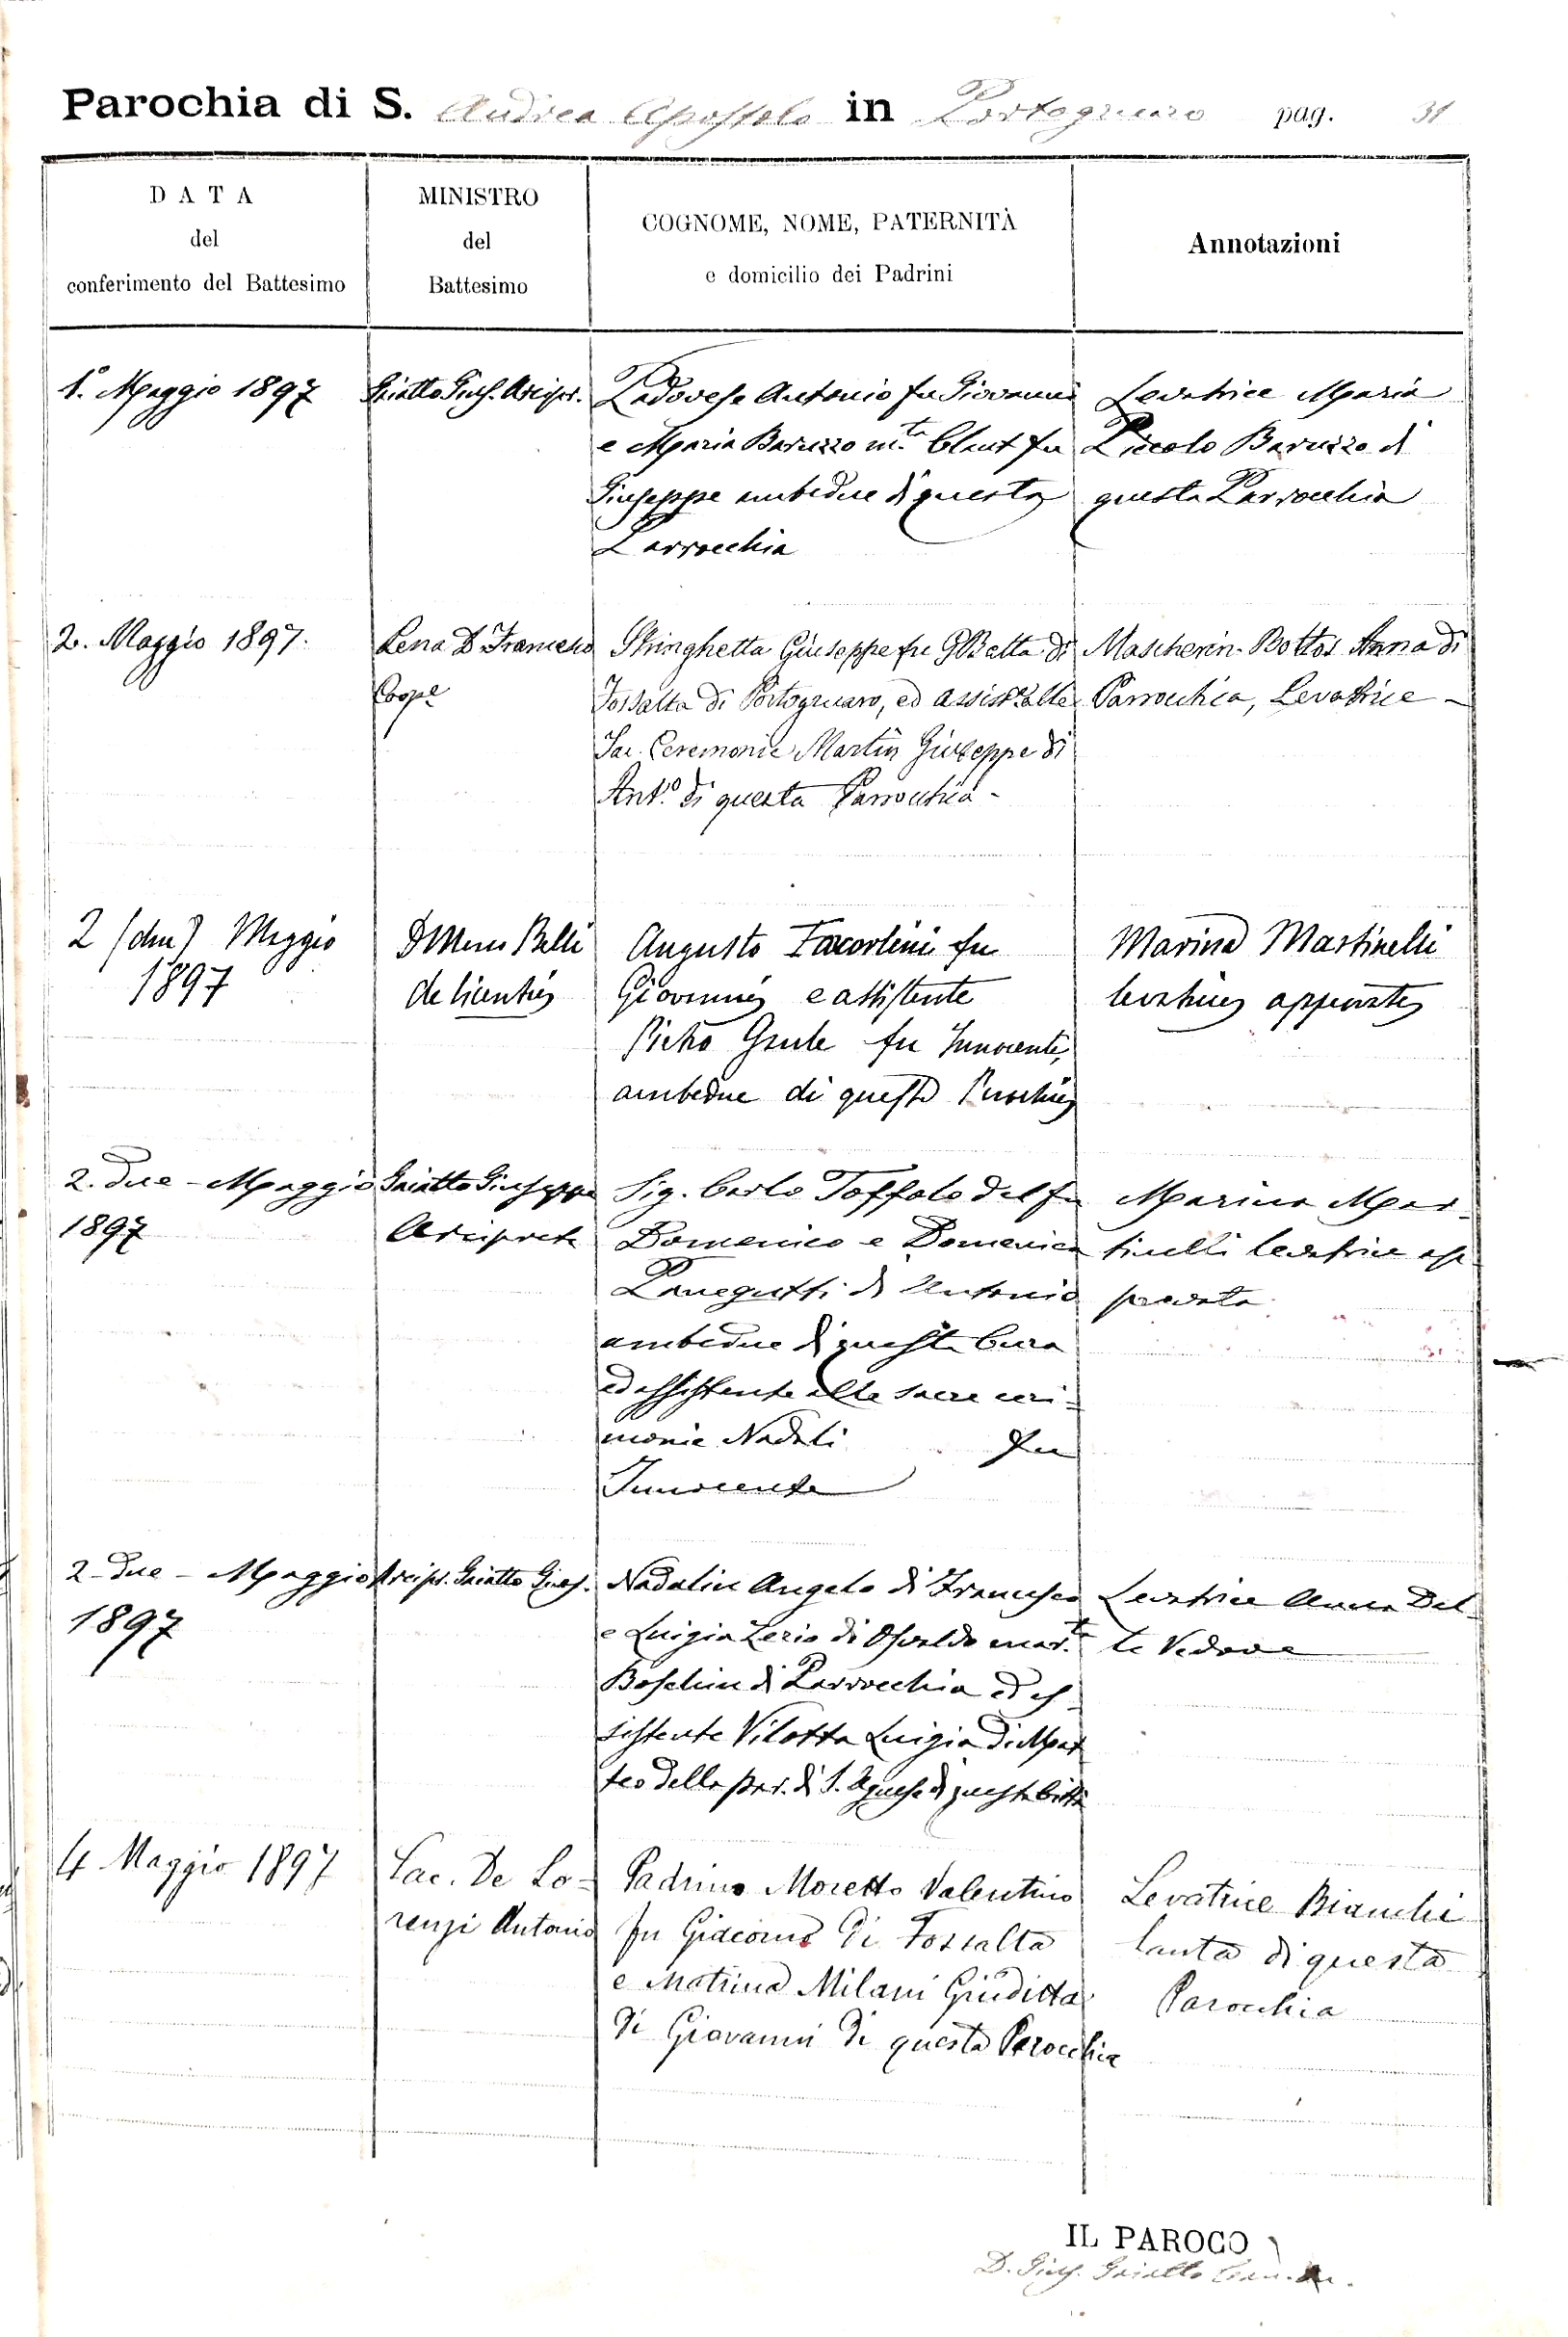 Parochia di S. Andrea Apostolo in Portogruaro pag. 31
DATA
del
conferimento del Battesimo
MINISTRO
del
Battesimo
COGNOME, NOME, PATERNITÀ
e domicilio dei Padrini
Annotazioni
1.° Maggio 1897
Gaiatto Gius. Arcipr.
Padovese Antonio fu Giovanni
e Maria Baruzzo m.ta Blaut fu
Giuseppe ambedue di questa
Parrocchia
Levatrice Maria
Piccolo Baruzzo di
questa Parrocchia
2. Maggio 1897.
Lena D. Francesco
Coope
Stringhetta Giuseppe fu GBatta di
Fossalta di Portogruaro, ed assist. alle
Sac. Ceremonie Martin Giuseppe di
Ant.o di questa Parrocchia -
Mascherin-Bottos Anna di
Parrocchia, Levatrice -
2 (due) Maggio
1897
D Belli
de licentia
Augusto fu
Giovanni e assistente
Pietro fu Innocente,
ambedue di questa Parochia
Marina Martinelli
levatrice approvata
2. due - Maggio
1897
Gaiatto Giuseppe
Arciprete
Sig. Carlo Toffolo del fu
Domenico e Domenica
Panegutti di Antonio
ambedue di questa Cura
ed assistente alle sacre ceri=
monie Nadali fu
Innocente
Marina Mar-
tinelli levatrice ap-
provata
2 - due - Maggio
1897
Arcipr. Gaiatto Gius.
Nadalin Angelo di Francesco
e Luigia Zerio di Osvaldo mar.ta
Boschin di Parrocchia ed as-
sistente Vilotta Luigia di Mat
teo della par. di S. Agnese di questa Città
Levatrice Anna Del-
le Vedove
4 Maggio 1897
Sac. De Lo=
renzi Antonio
Padrino Moretto Valentino
fu Giacomo di Fossalta
e Matrina Milani Giuditta
di Giovanni di questa Parocchia
Levatrice Bianchi
Santa di questa
Parocchia
IL PAROCO
D. Gius. Gaiatto